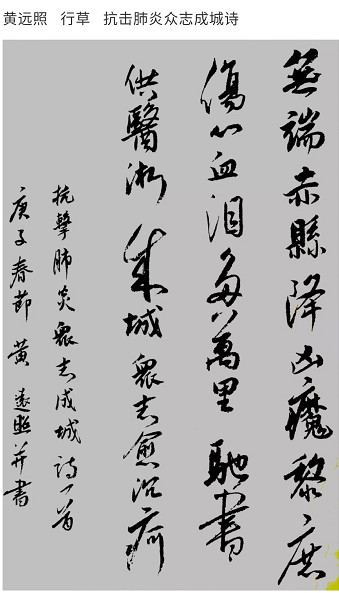 黄远照 行草 抗击肺炎众志成城诗
無端赤縣降凶魔黎庶
傷心血泪多萬里馳書
供醫 成城眾志愈沉疴
抗擊肺炎眾志成城詩一首
庚子春節黃遠照并書